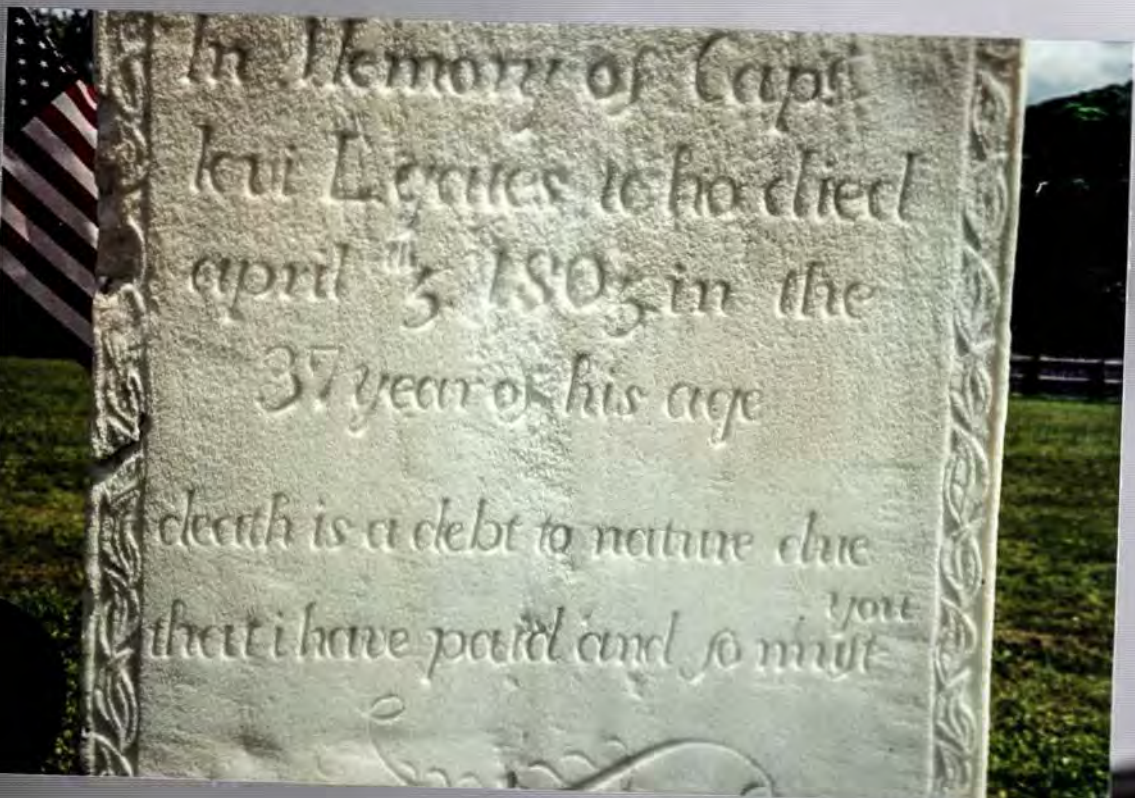 In Memory of Capt
levi Legates who died
april th 5 1805 in the
37 year of his age
death is a debt to nature due
you
that i have paid and so must